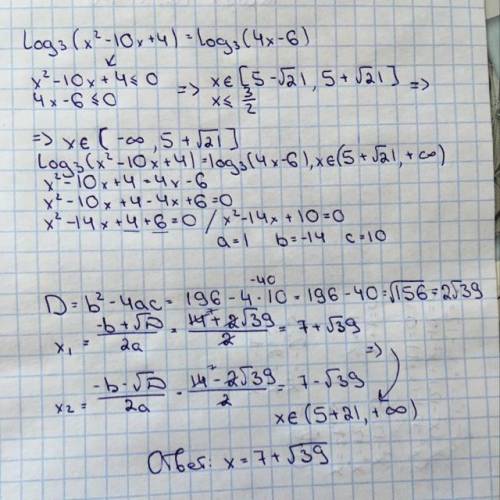 log₃(x²-10x+4)=log₃(4x-6)
x²-10x+4≤0
4x-6≤0
=> x∈[5-√21, 5+√21]
x≤ 3/2 =>
=> x∈[-∞, 5+√21]
log₃(x²-10x+4)=log₃(4x-6), x∈(5+√21,+∞)
x²-10x+4=4x-6
x²-10x+4-4x+6=0
x²-14x+4+6=0 / x²-14x+10=0
a=1 b=-14 c=10
-40
D=b²-4ac= 196-4·10=196-40=√156=2√39
x₁ = (-b+√D)/2a = (14+2√39)/2 = 7+√39
=>
x₂ = (-b-√D)/2a = (14-2√39)/2 = 7-√39
x∈(5+21,+∞)
Ответ: x=7+√39